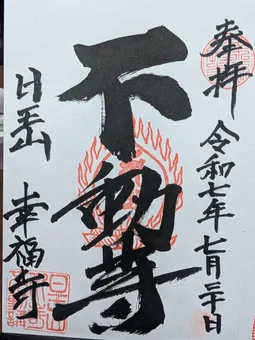 奉拝
令和七年七月二十日
不動尊
日王山
幸福寺